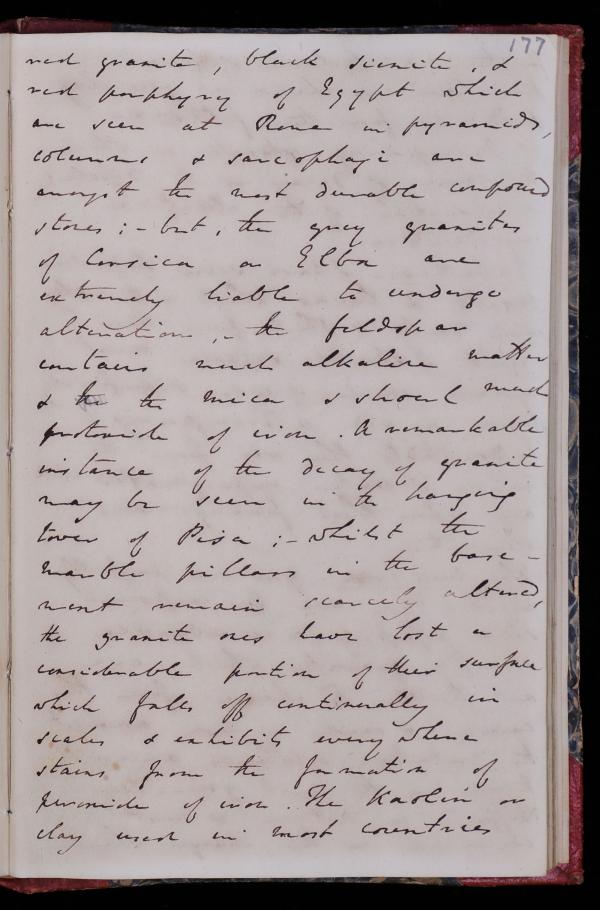 177
red granite, black sienite, &
red porphyry of Egypt which
are seen at Rome in pyramids,
columns & sarcophagi are
amongst the most durable compound
stones; - but, the grey granites
of Corsica or Elba are
extremely liable to undergo
alteration, - the feldspar
contains much alkaline matter
& the the mica & shorl much
protoxide of iron. A remarkable
instance of the decay of granite
may be seen in the hanging
tower of Pisa; - whilst the
marble pillars in the base-
ment remain scarcely altered,
the granite ones have lost a
considerable portion of their surface
which falls off continually in
scales & exhibits every where
stains from the formation of
peroxide of iron. The Kaolin or
clay used in most countries